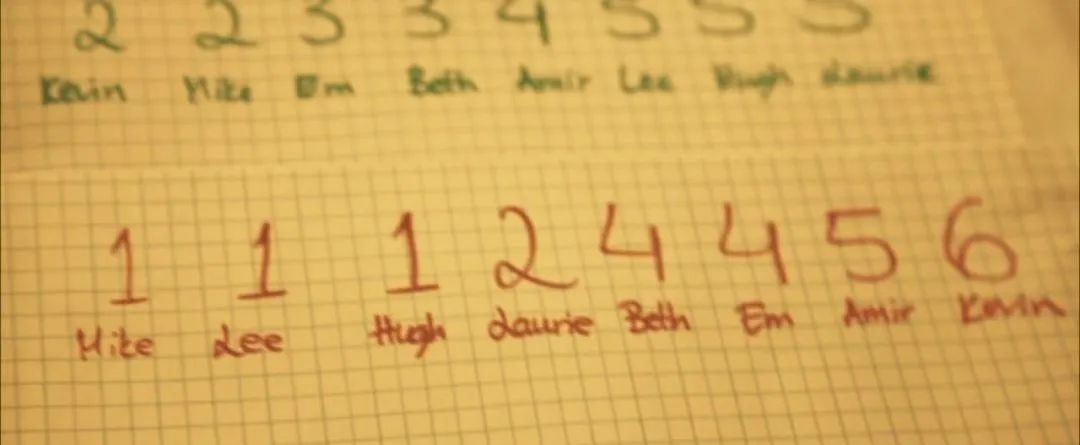 2 2 3 3 4 5 5 5
Kevin Mike Em Beth Amir Lee Hugh Laurie
1 1 1 2 4 4 5 6
Mike Lee Hugh Laurie Beth Em Amir Kevin